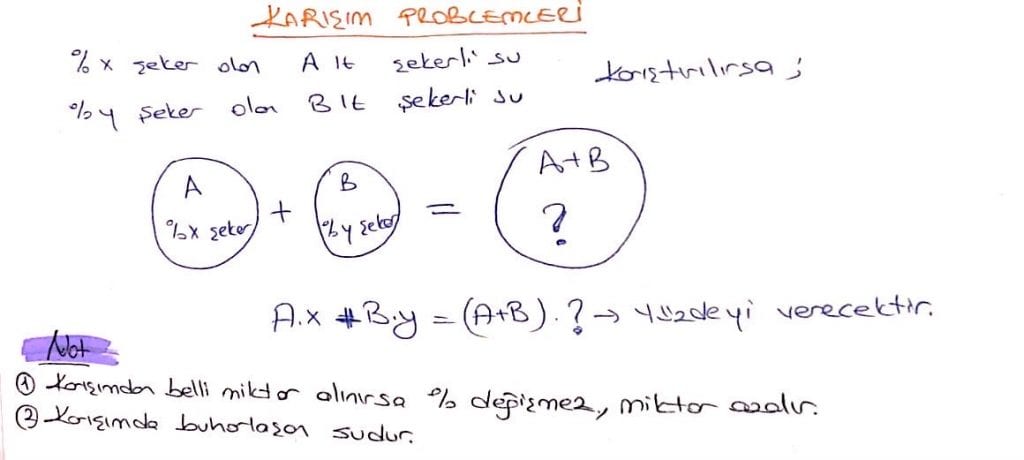 KARIŞIM PROBLEMLERİ
% x şeker olan A lt şekerli su
karıştırılırsa ;
% y şeker olan B lt şekerli su
A + B = A+B
%x şeker %y şeker ?
A.x + B.y = (A+B).? → yüzdeyi verecektir.
Not
① Karışımdan belli miktar alınırsa % değişmez, miktar azalır.
② Karışımda buharlaşan sudur.